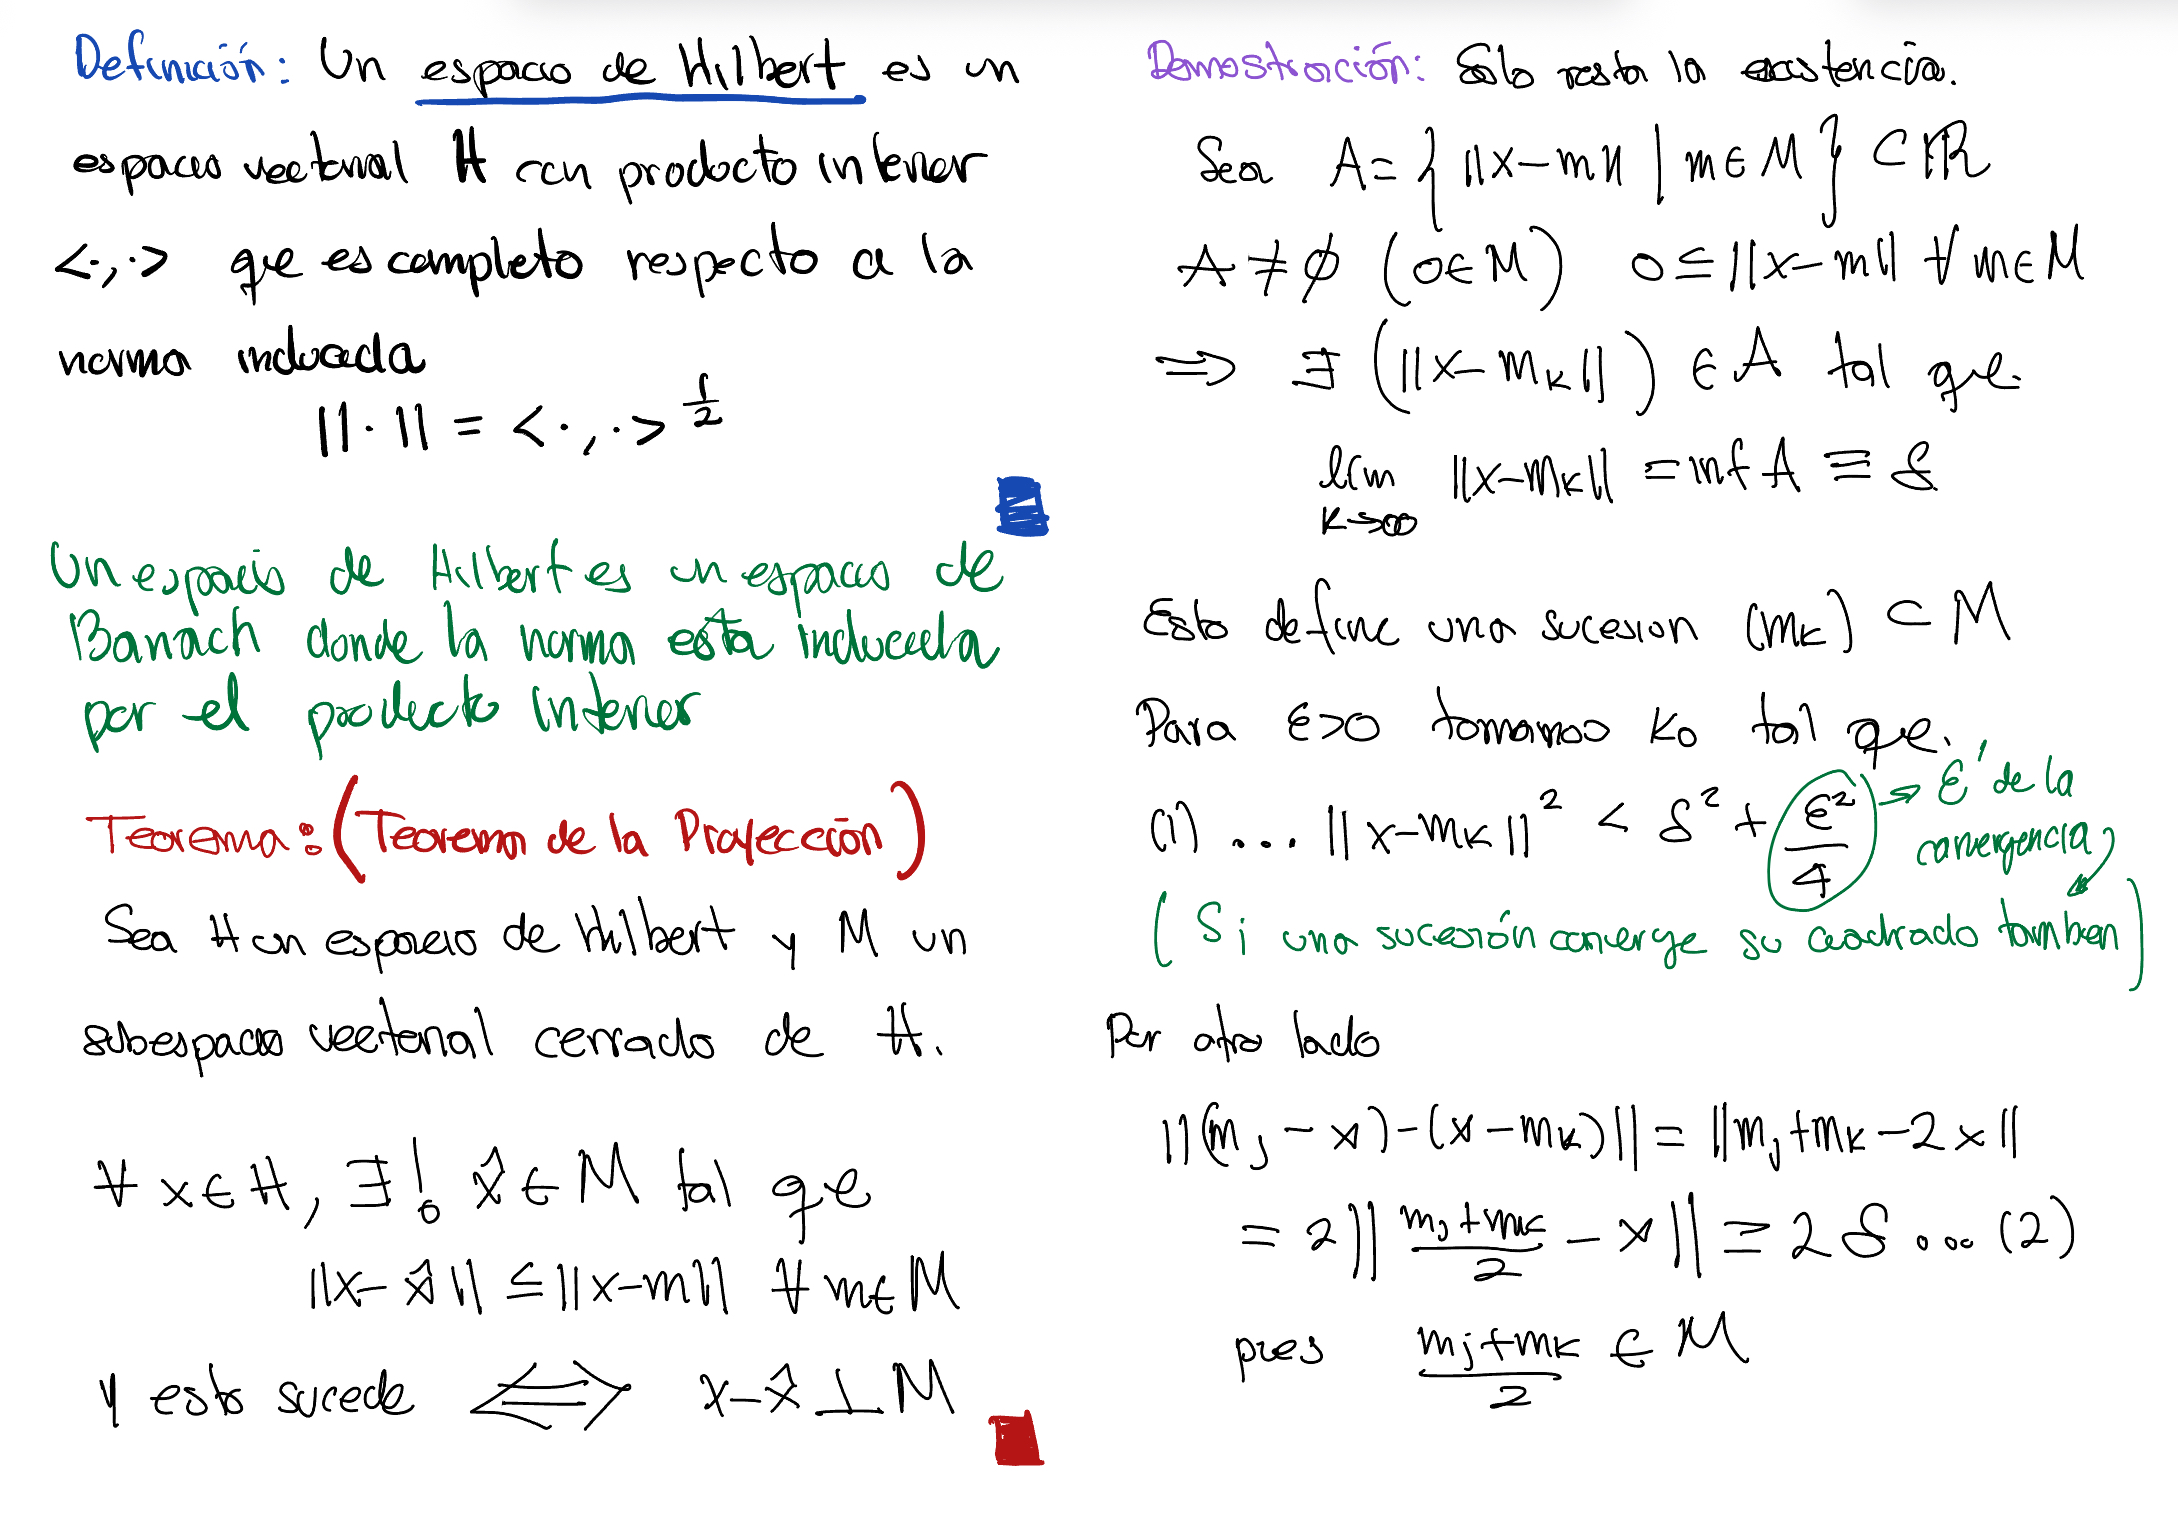 Definición: Un espacio de Hilbert es un
espacio vectorial H con producto interior
<·,·> que es completo respecto a la
norma inducida
||·|| = <·,·>^{1/2}
Un espacio de Hilbert es un espacio de
Banach donde la norma esta inducida
por el producto interior
Teorema: (Teorema de la Proyección)
Sea H un espacio de Hilbert y M un
subespacio vectorial cerrado de H.
∀ x ∈ H, ∃! x̂ ∈ M tal que
||x - x̂|| ≤ ||x - m|| ∀ m ∈ M
Y esto sucede ⟺ x - x̂ ⊥ M
Demostración: Solo resta la existencia.
Sea A = { ||x - m|| | m ∈ M } ⊂ ℝ
A ≠ ∅ (0 ∈ M) 0 ≤ ||x - m|| ∀ m ∈ M
⟹ ∃ (||x - m_k||) ∈ A tal que
lím_{k→∞} ||x - m_k|| = inf A ≡ δ
Esto define una sucesion (m_k) ⊂ M
Para ε > 0 tomamos k₀ tal que
(1) ... ||x - m_k||² < δ² + ε²/4 → ε' de la
convergencia
(Si una sucesión converge su cuadrado tambien)
Por otro lado
||(m_j - x) - (x - m_k)|| = ||m_j + m_k - 2x||
= 2 || (m_j + m_k)/2 - x || ≥ 2δ ... (2)
pues (m_j + m_k)/2 ∈ M